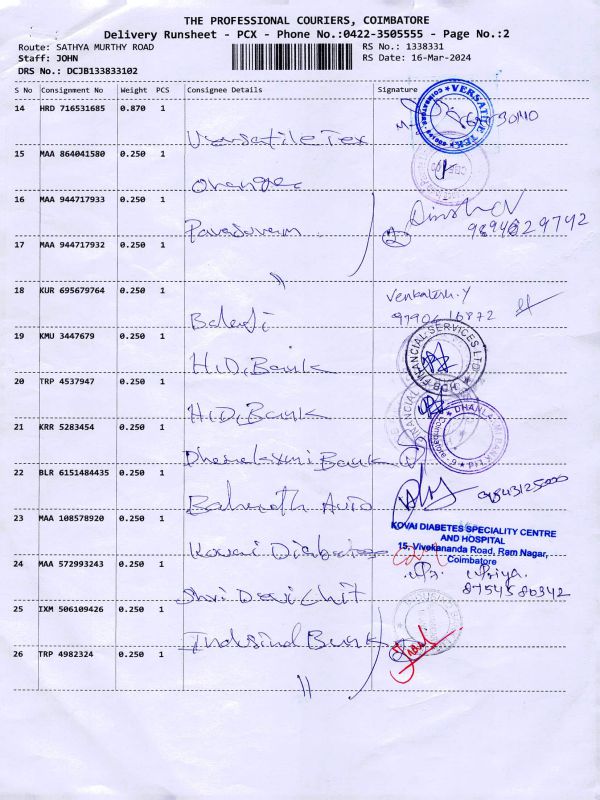 THE PROFESSIONAL COURIERS, COIMBATORE
Delivery Runsheet - PCX - Phone No.:0422-3505555 - Page No.:2
Route: SATHYA MURTHY ROAD
RS No.: 1338331
Staff: JOHN
RS Date: 16-Mar-2024
DRS No.: DCJB133833102
S No Consignment No Weight PCS Consignee Details Signature
14 HRD 716531685 0.870 1
Versatile Tex
VERSATILE TEX
COIMBATORE
15 MAA 864041580 0.250 1
Oranges
16 MAA 944717933 0.250 1
Dinesh
9894629742
17 MAA 944717932 0.250 1
"
18 KUR 695679764 0.250 1
Venkatesh.Y
Balaji
19 KMU 3447679 0.250 1
H.D. Bank
HDB FINANCIAL SERVICES LTD
20 TRP 4537947 0.250 1
H.D. Bank
FINANCIAL
21 KRR 5283454 0.250 1
Dhanalaxmi Bank
DHANLAXMI BANK LTD
Coimbatore
22 BLR 6151484435 0.250 1
Bharath Auto
23 MAA 108578920 0.250 1
Kovai Diabetes
KOVAI DIABETES SPECIALITY CENTRE
AND HOSPITAL
15, Vivekananda Road, Ram Nagar,
Coimbatore
24 MAA 572993243 0.250 1
Shri Devi Chit
Priya.
8754580342
25 IXM 506109426 0.250 1
Indusind Bank
26 TRP 4982324 0.250 1
"